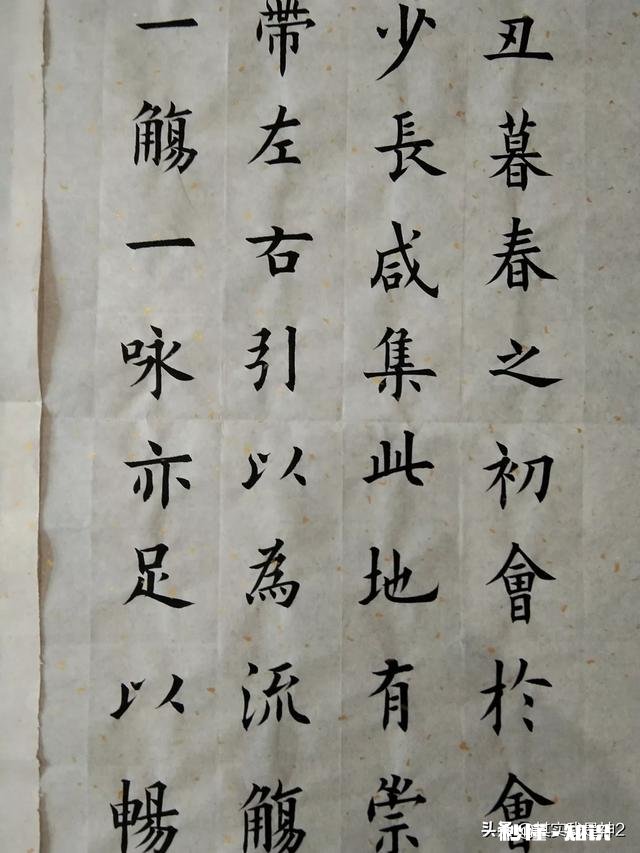 丑暮春之初會於會
少長咸集此地有崇
帶左右引以為流觴
一觴一咏亦足以暢